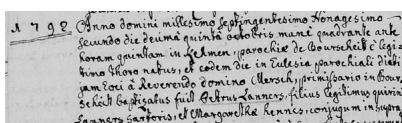 1792 Anno domini millesimo septingentesimo Nonagesimo
secundo die decima quinta octobris mane quadrante ante
horam quintam in Lelmen, parochiæ de Bourscheit è legi-
timo thoro natus, et eodem die in Eclesia parochiali dicti
jam loci à Reverendo domino Mersch, primissario in Bour,
scheit baptizatus fuit Petrus Lanners, filius legitimus quirini
Lanners Sartoris, et Margarethæ hennes, conjugum in supra